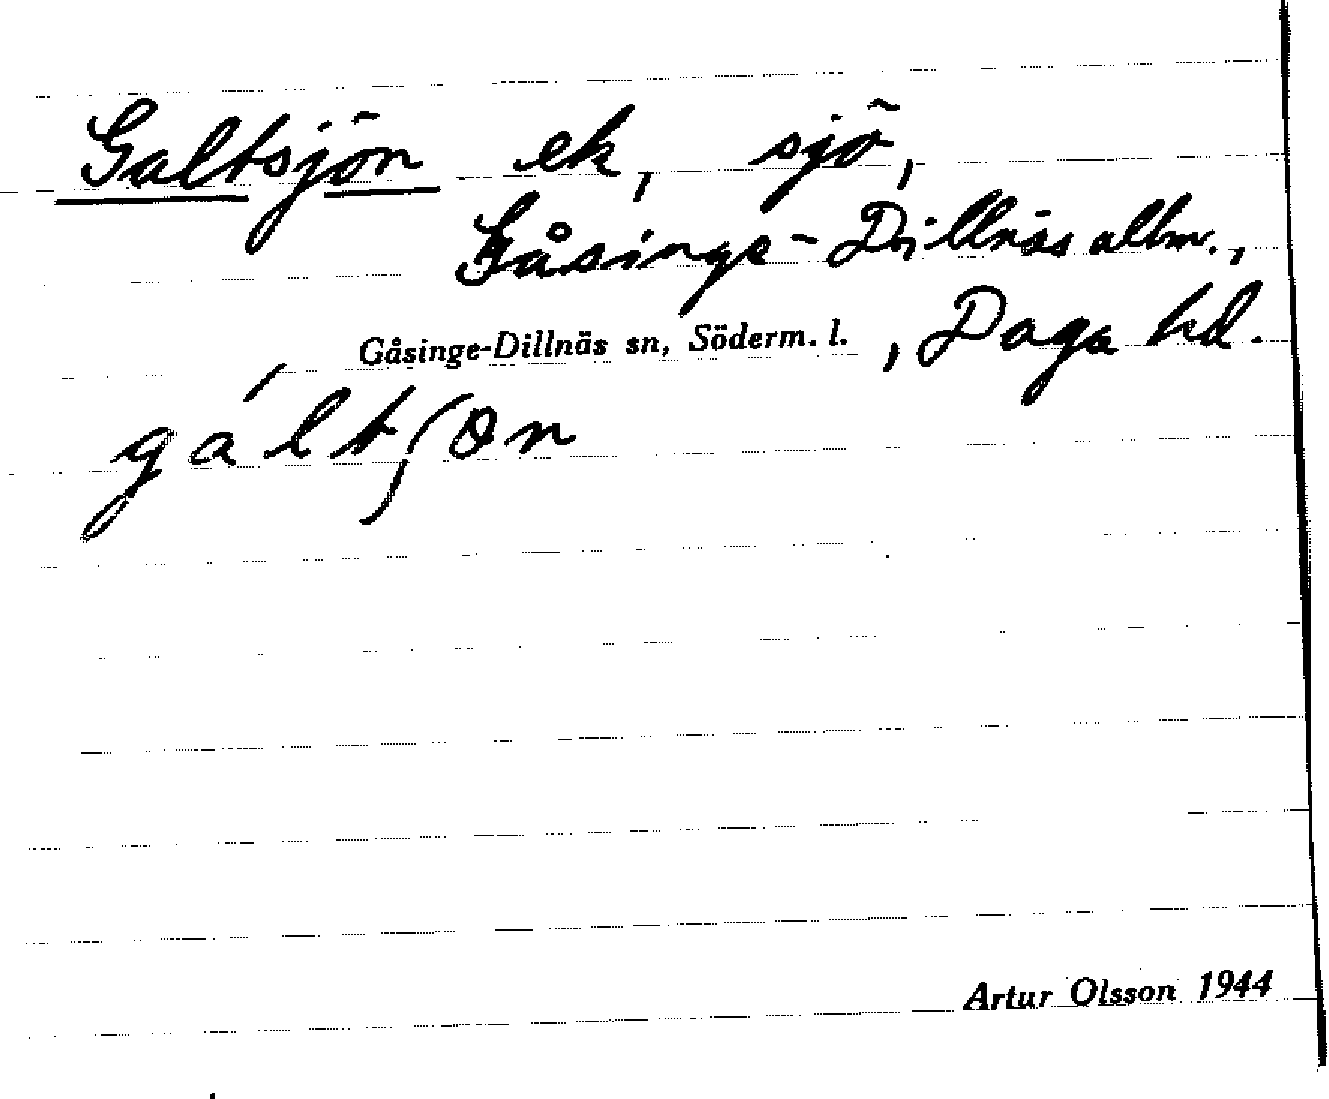 Galtsjön ek, sjö,
Gåsinge-Dillnäs allm.,
Gåsinge-Dillnäs sn, Söderm. l. , Daga hd.
gáltʃon
Artur Olsson 1944